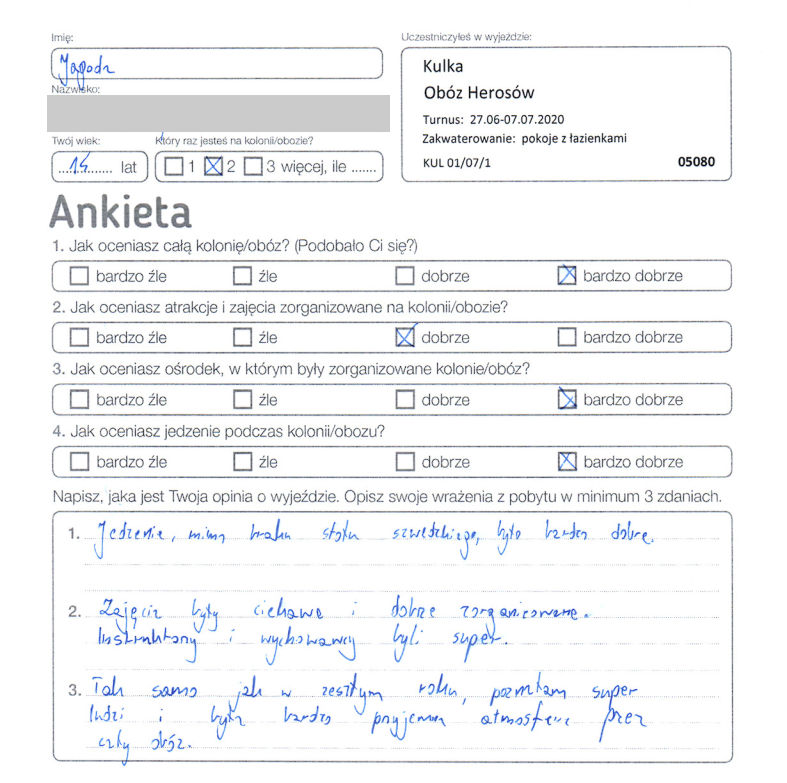 Imię:
Uczestniczyłeś w wyjeździe:
Jagoda
Nazwisko:
Kulka
Obóz Herosów
Turnus: 27.06-07.07.2020
Zakwaterowanie: pokoje z łazienkami
KUL 01/07/1 05080
Twój wiek: Który raz jesteś na kolonii/obozie?
....14....... lat 1 2 3 więcej, ile .......
Ankieta
1. Jak oceniasz całą kolonię/obóz? (Podobało Ci się?)
bardzo źle źle dobrze bardzo dobrze
2. Jak oceniasz atrakcje i zajęcia zorganizowane na kolonii/obozie?
bardzo źle źle dobrze bardzo dobrze
3. Jak oceniasz ośrodek, w którym były zorganizowane kolonie/obóz?
bardzo źle źle dobrze bardzo dobrze
4. Jak oceniasz jedzenie podczas kolonii/obozu?
bardzo źle źle dobrze bardzo dobrze
Napisz, jaka jest Twoja opinia o wyjeździe. Opisz swoje wrażenia z pobytu w minimum 3 zdaniach.
1. Jedzenie, mimo braku stołu szwedzkiego, było bardzo dobre.
2. Zajęcia były ciekawe i dobrze zorganizowane.
Instruktorzy i wychowawcy byli super.
3. Tak samo jak w zeszłym roku, poznałam super
ludzi i była bardzo przyjemna atmosfera przez
cały obóz.